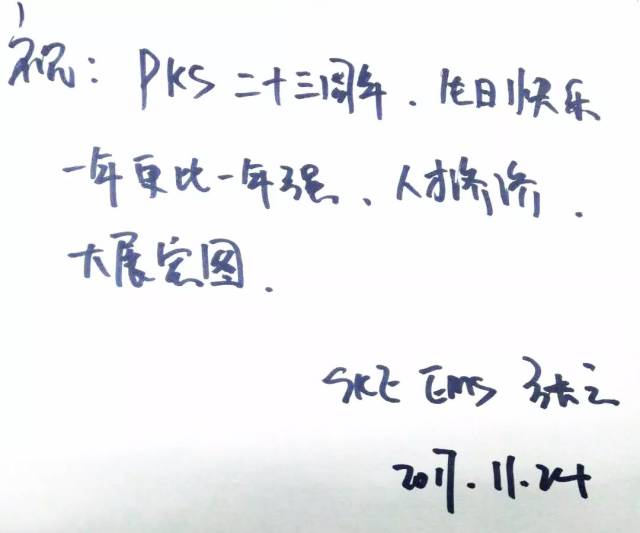 祝：PKS 二十三周年．生日快乐
一年更比一年强、人才济济．
大展宏图．
SKE EMS 张立
2017.11.24